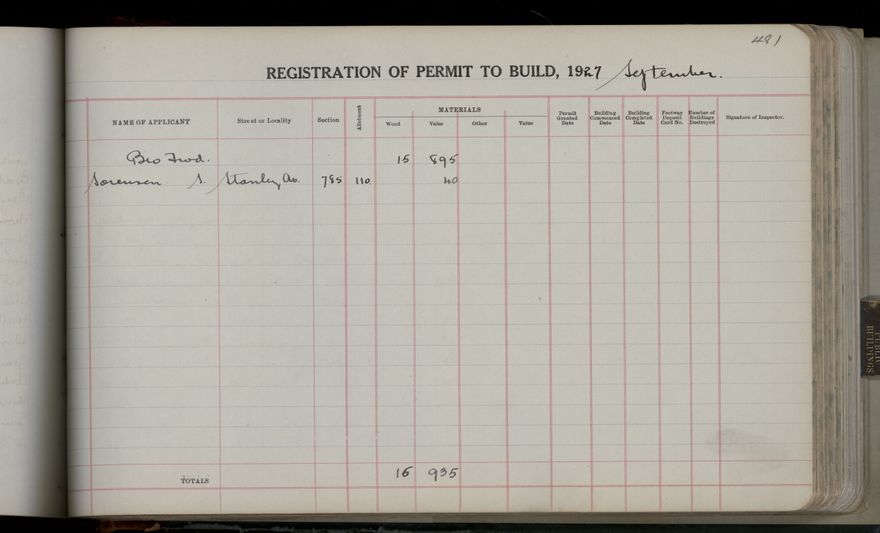 481
REGISTRATION OF PERMIT TO BUILD, 1927 September.
MATERIALS
NAME OF APPLICANT Street or Locality Section Allotment Wood Value Other Value Permit Granted Date Building Commenced Date Building Completed Date Footway Deposit Card No. Number of Buildings Destroyed Signature of Inspector.
Bro Fwd. 15 895
Sorensen S. Stanley Av. 785 110 40
TOTALS 16 935
PUBLIC
BUILDINGS